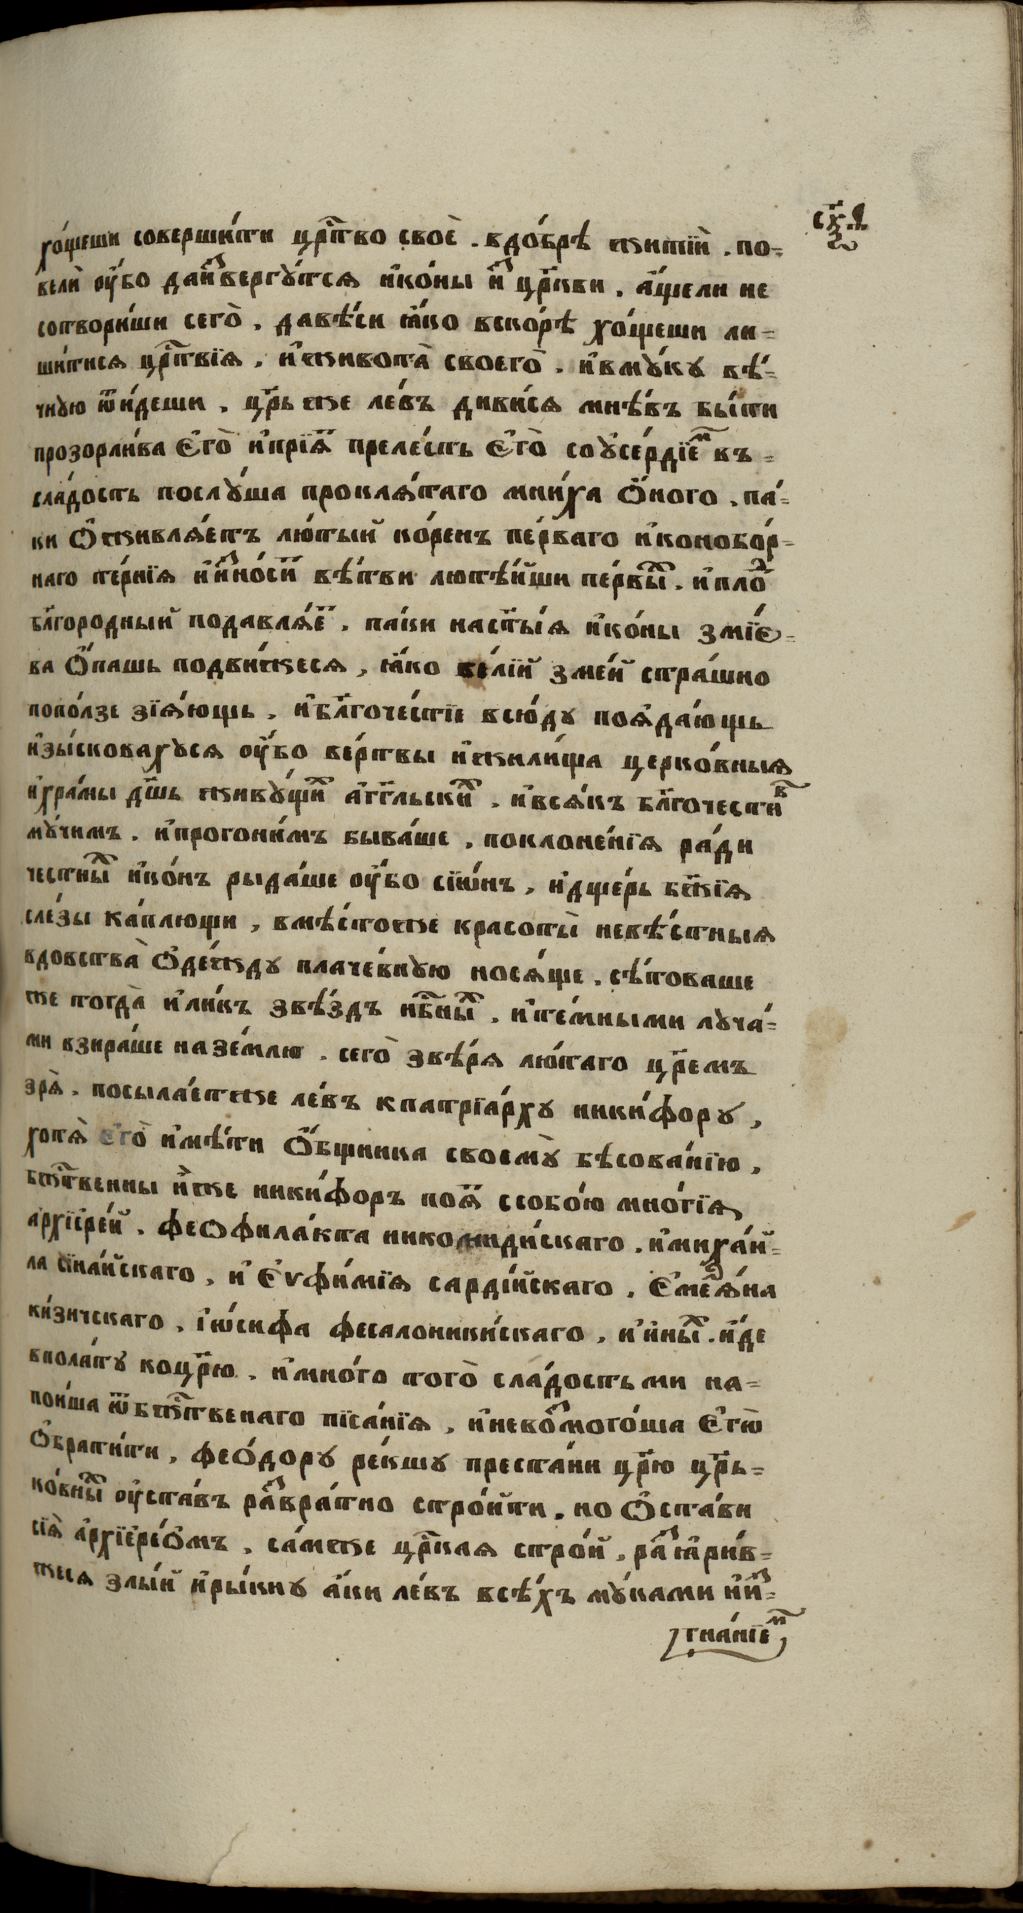 сх҃д
хо́щеши соверши́ти црⷭ҇тво своѐ . вдо́брѣ житїѝ . по-
вели̑ ᲂу҆́бо даи҆звергꙋ́тсѧ и҆ко́ны и҆з̾ цр҃кви . а҆́щели не
сотвори́ши сегѡ̀ . давѣ́си ꙗ҆́ко вско́рѣ хо́щеши ли-
ши́тисѧ црⷭ҇твїѧ , и҆живота̀ своегѡ̀ . и҆вмꙋ́кꙋ вѣ́-
чнꙋю ѿи́деши . цр҃ь же ле́въ диви́сѧ мнѣ́въ бы́ти
прозорли́ва Є҆гѡ̀ и҆прїѧ́т прeле́сть Є҆гѡ̀ соᲂу҆се́рдїемъ въ-
сла́дость послꙋ́ша проклѧ́таго мни́ха Ѻ҆́наго , па́-
ки Ѻ҆живлѧ́етъ лю́тый ко́ренъ пе́рваго и҆конобо́р-
наго те́рнїѧ и҆и҆зно́сит вѣ́тви лютѣ́йши пе́рвых . и҆пло́д
бл҃горо́дный подавлѧ́ет . па́ки наст҃ы́ѧ и҆ко́ны змїе́-
ва Ѻ҆́пашь подви́жесѧ , ꙗ҆́ко ве́лїй зме́й стра́шно
попо́лзе зїѧ́ющь . и҆бл҃гоче́стїе всю́дꙋ поѧда́ющь
и҆зы́сковахꙋсѧ ᲂу҆́бо ве́ртвы и҆жили́ща церко́вныѧ
и҆хра́мы дш҃ь живꙋ́щих а҆́гг҃льских . и҆всѧ́къ бл҃гочести́в
мꙋ́чимъ . и҆прогони́мъ быва́ше . поклоне́нїѧ ра́ди
честны́х и҆ко́нъ рыда́ше ᲂу҆́бо сїѡ́нъ , и҆дще́рь бж҃їѧ
сле́зы ка́плющи , вмѣ́стоже красоты̀ невѣ́стныѧ
вдовства̀ Ѻ҆де́ждꙋ плаче́внꙋю носѧ́ще . сѣ́товаше
же тогда̀ и҆ли́къ звѣ́здъ нбⷭ҇ных . и҆те́мными лꙋча́-
ми взира́ше назе́млю . сегѡ̀ звѣ́рѧ лю́таго цр҃емъ
зрѧ̀ . посыла́етже ле́въ кпатрїа́рхꙋ ники́форꙋ ,
хотѧ̀ є҆гѡ̀ и҆мѣ́ти Ѻ҆́бщника своемꙋ̀ бѣсова́нїю .
бж҃твенны и҆́же ники́форъ поѧ́т ссобо́ю мно́гїѧ
а҆рхїере́й . феофила́кта никомиди́скаго . и҆михаи́-
ла сїна́йскаго , и҆ Є҆ѵфи́мїѧ сарді́йскаго . Є҆меѧ́на
ки́зичскаго . і҆ѡ́сифа фесалоники́скаго , и҆и҆ны́х . и҆́де
вполатꙋ̀ коцр҃ю . и҆мно́го тогѡ̀ сла́достьми на-
пои́ша ѿбж҃твенаго писа́нїѧ , и҆невозмого́ша Є҆гѡ̀
Ѻ҆брати́ти , Ѳео́дорꙋ ре́кшꙋ преста́ни цр҃ю цр҃ь-
ко́вных ᲂу҆ста́въ развра́тно стро́ити . но Ѻ҆ста́ви
сїѧ̀ а҆рхїере́ѡмъ . са́мже црⷭ҇каѧ стро́й . разъꙗри́в-
жисѧ злы́й и҆ры́кнꙋ а҆́ки ле́въ всѣ́хъ мꙋ́ками и҆и҆з-
гна́нїем